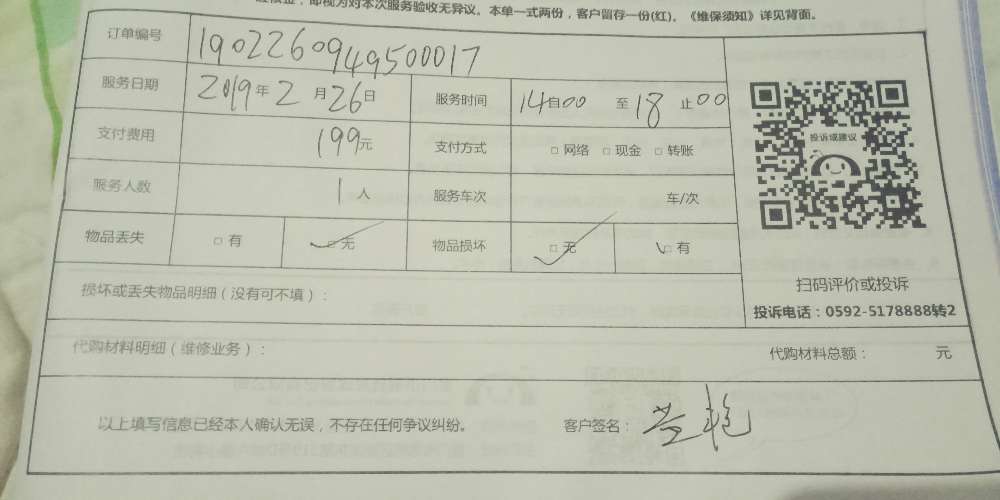 对本次服务验收无异议。本单一式两份，客户留存一份(红)。《维保须知》详见背面。
订单编号 1902260949500017
服务日期 2019年2月26日 服务时间 14自00 至18止00
支付费用 199元 支付方式 □网络 □现金 □转账
服务人数 1人 服务车次 车/次
物品丢失 □有 ✓□无 物品损坏 □无✓ □有
投诉或建议
损坏或丢失物品明细（没有可不填）：
扫码评价或投诉
投诉电话：0592-5178888转2
代购材料明细（维修业务）：
代购材料总额： 元
以上填写信息已经本人确认无误，不存在任何争议纠纷。 客户签名：